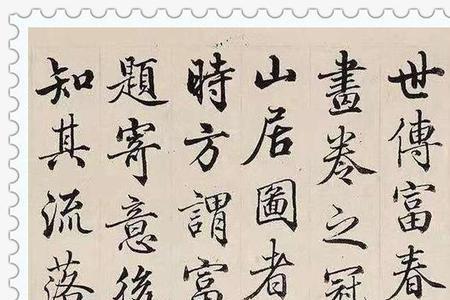 世傳富春
畫卷之冠
山居圖者
時方謂富
題寄意後
知其流落